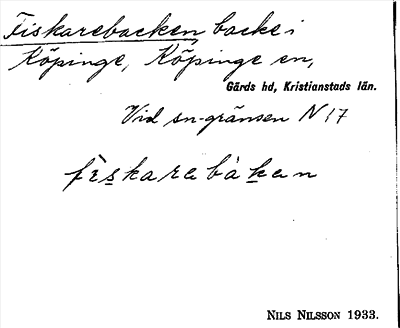 Fiskarebacken, backe i
Köpinge, Köpinge sn,
Gärds hd, Kristianstads län.
Vid sn-gränsen N 17
fìskarebàken
NILS NILSSON 1933.